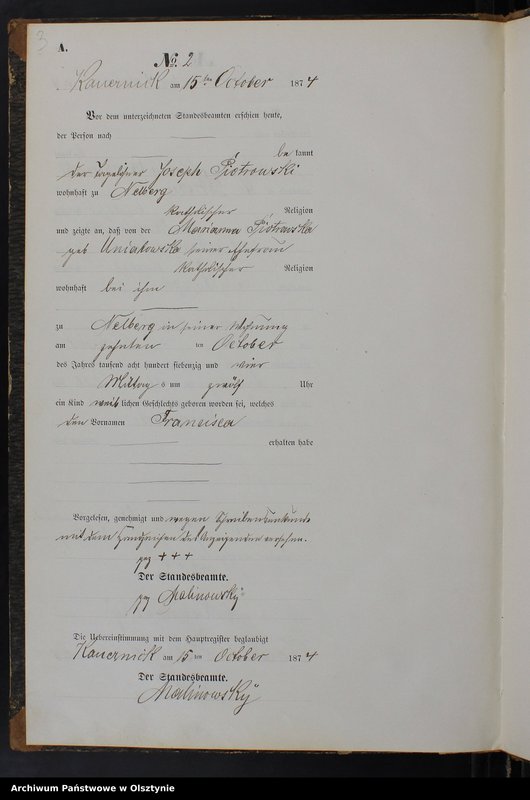 3
A.
№ 2
Kauernick am 15ten October 1874
Vor dem unterzeichneten Standesbeamten erschien heute,
der Person nach
be kannt
der Tagelöhner Joseph Piotrowski
wohnhaft zu Nelberg
katholischer Religion
und zeigte an, daß von der Marianna Piotrowska
geb Uniatowska seiner Ehefrau
katholischer Religion
wohnhaft bei ihm
zu Nelberg in seiner Wohnung
am zehnten ten October
des Jahres tausend acht hundert siebenzig und vier
Mittag s um zwölf Uhr
ein Kind weib lichen Geschlechts geboren worden sei, welches
den Vornamen Francisca
erhalten habe
Vorgelesen, genehmigt und wegen Schreibensunkunde
mit dem Handzeichen des Anzeigenden versehen.
gez + + +
Der Standesbeamte.
gez Malinowsky
Die Uebereinstimmung mit dem Hauptregister beglaubigt
Kauernick am 15 ten October 1874
Der Standesbeamte.
Malinowsky
Archiwum Państwowe w Olsztynie